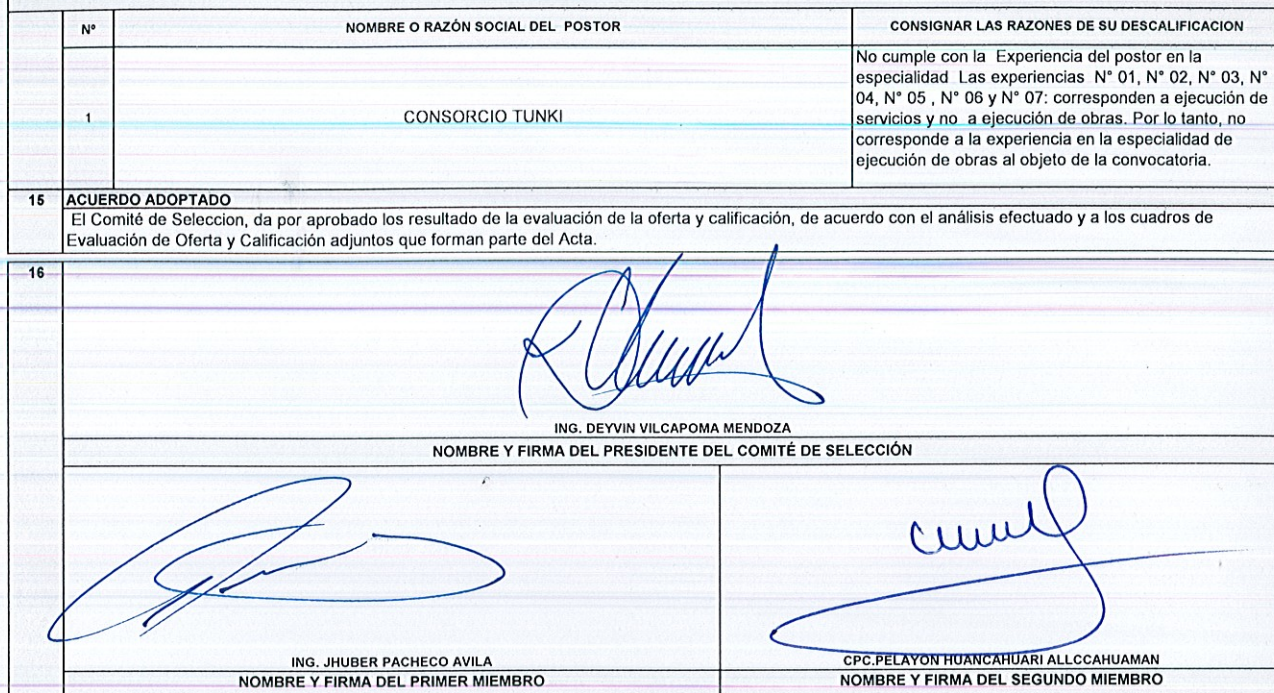 N° NOMBRE O RAZÓN SOCIAL DEL POSTOR CONSIGNAR LAS RAZONES DE SU DESCALIFICACION
1 CONSORCIO TUNKI
No cumple con la Experiencia del postor en la
especialidad Las experiencias N° 01, N° 02, N° 03, N°
04, N° 05 , N° 06 y N° 07: corresponden a ejecución de
servicios y no a ejecución de obras. Por lo tanto, no
corresponde a la experiencia en la especialidad de
ejecución de obras al objeto de la convocatoria.
15 ACUERDO ADOPTADO
El Comité de Seleccion, da por aprobado los resultado de la evaluación de la oferta y calificación, de acuerdo con el análisis efectuado y a los cuadros de
Evaluación de Oferta y Calificación adjuntos que forman parte del Acta.
16
ING. DEYVIN VILCAPOMA MENDOZA
NOMBRE Y FIRMA DEL PRESIDENTE DEL COMITÉ DE SELECCIÓN
ING. JHUBER PACHECO AVILA
NOMBRE Y FIRMA DEL PRIMER MIEMBRO
CPC.PELAYON HUANCAHUARI ALLCCAHUAMAN
NOMBRE Y FIRMA DEL SEGUNDO MIEMBRO